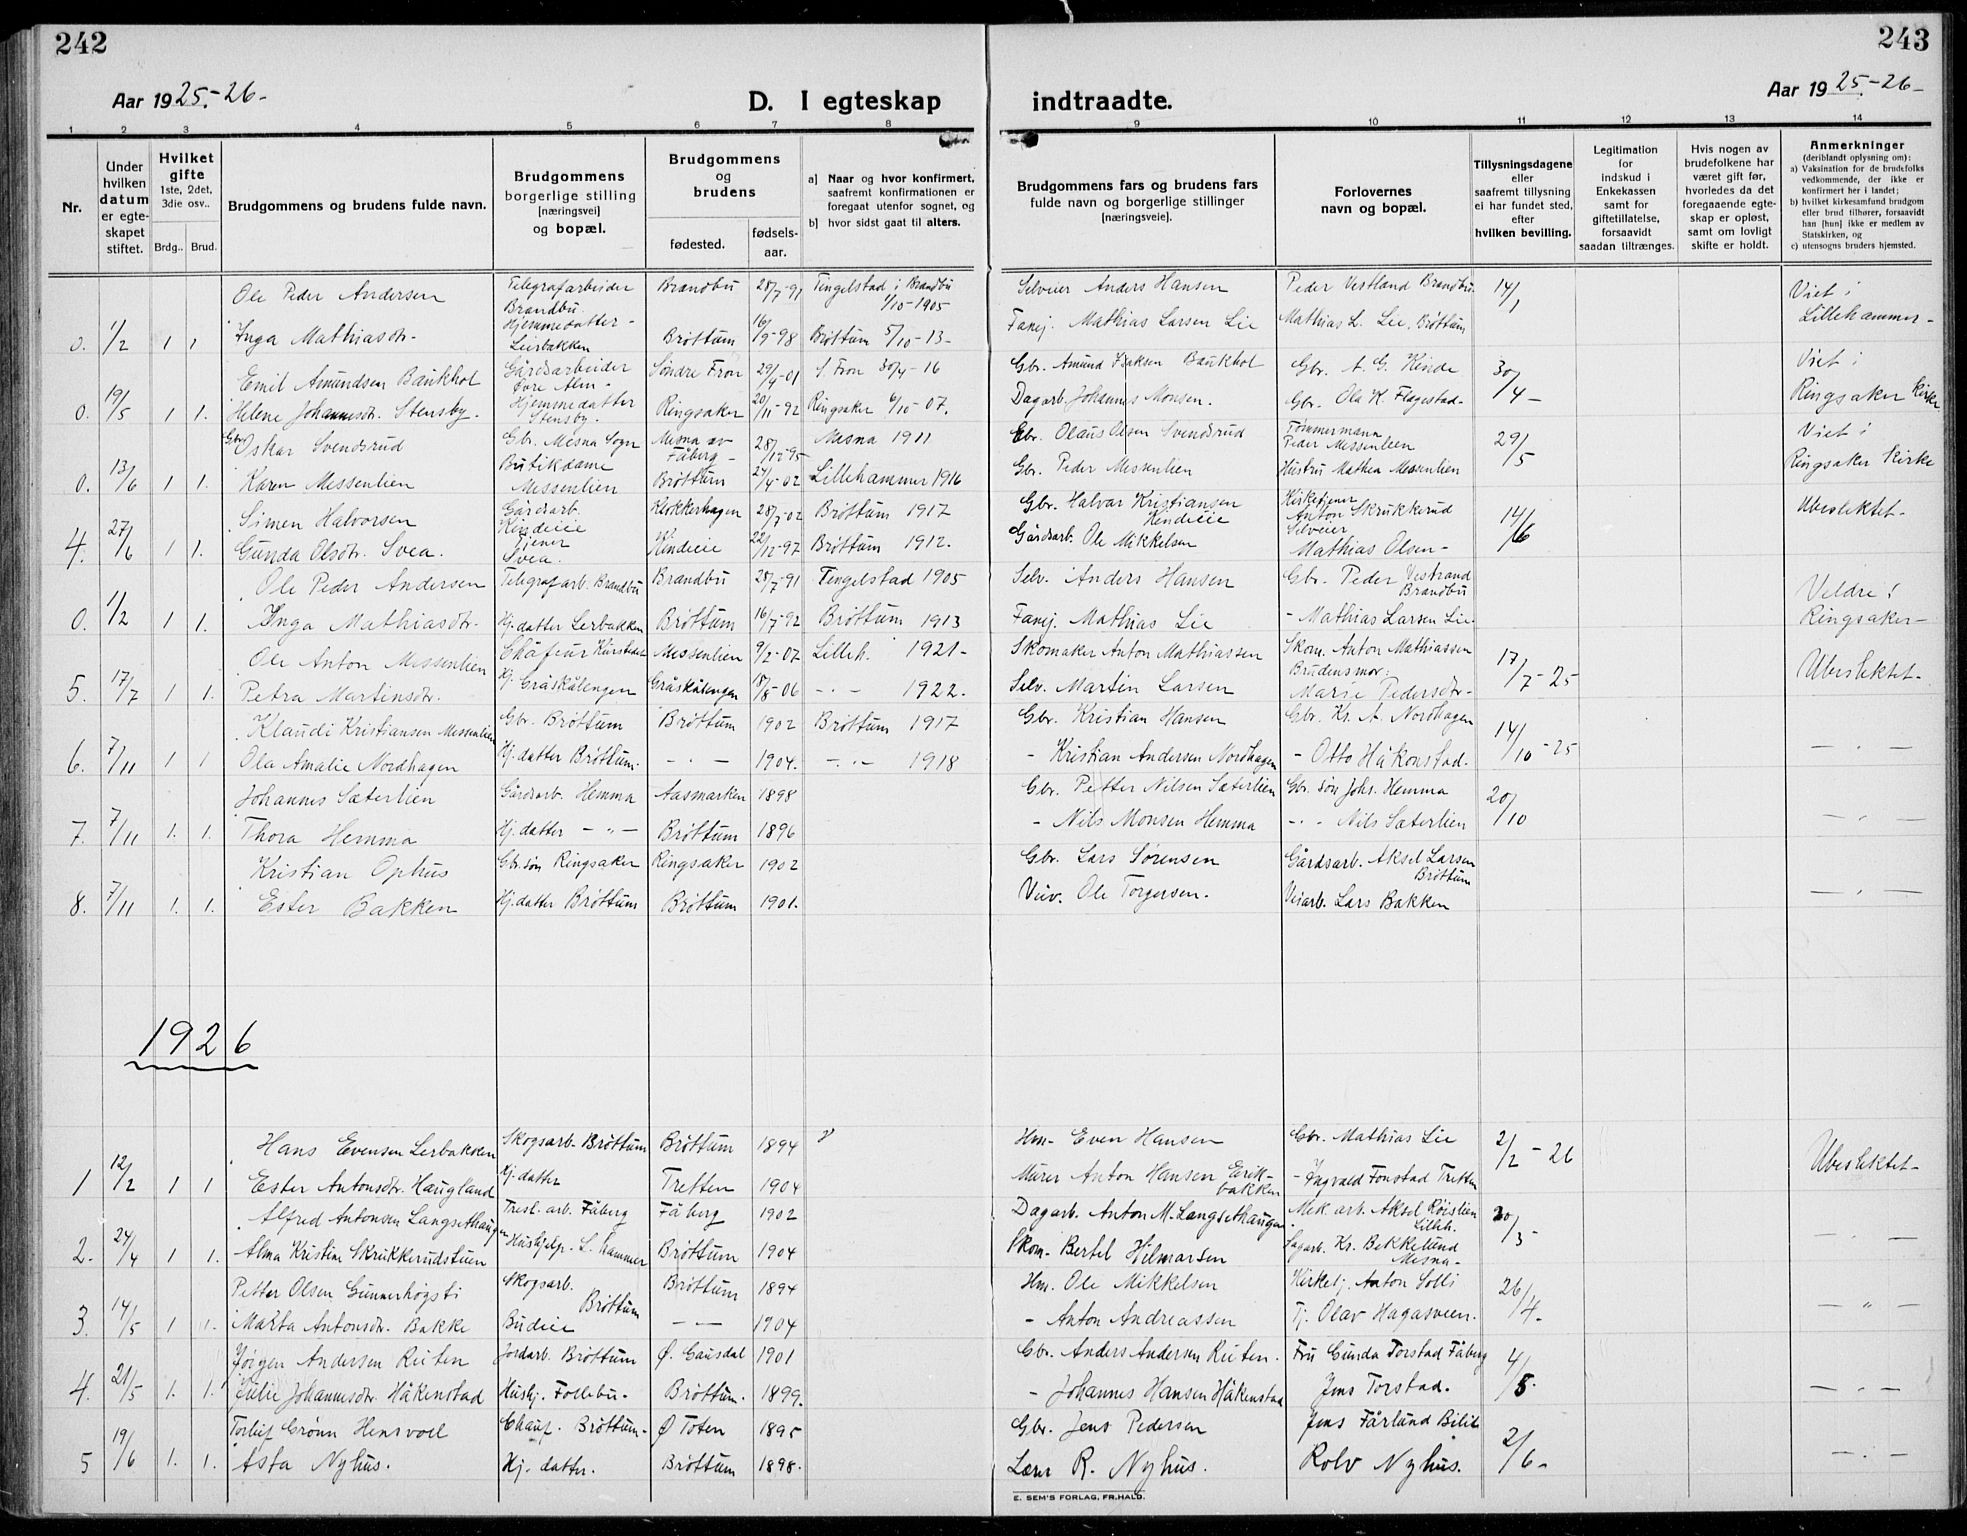 242
243
Aar 1925.-26-
D. I egteskap indtraadte.
Aar 1925.-26-
1 2 3 4 5 6 7 8 9 10 11 12 13 14
Nr.
Under hvilken datum er egteskapet stiftet.
Hvilket gifte 1ste, 2det, 3die osv..
Brdg.. Brud.
Brudgommens og brudens fulde navn.
Brudgommens borgerlige stilling [næringsvei] og bopæl.
Brudgommens og brudens
fødested. fødsels-aar.
a) Naar og hvor konfirmert, saafremt konfirmationen er foregaat utenfor sognet, og
b) hvor sidst gaat til alters.
Brudgommens fars og brudens fars fulde navn og borgerlige stillinger [næringsveie].
Forlovernes navn og bopæl.
Tillysningsdagene eller saafremt tillysning ei har fundet sted, efter hvilken bevilling.
Legitimation for indskud i Enkekassen samt for giftetillatelse, forsaavidt saadan tiltrænges.
Hvis nogen av brudefolkene har været gift før, hvorledes da det foregaaende egteskap er opløst, samt om lovligt skifte er holdt.
Anmerkninger (deriblandt oplysning om):
a) Vaksination for de brudefolks vedkommende, der ikke er konfirmert her i landet;
b) hvilket kirkesamfund brudgom eller brud tilhører, forsaavidt han [hun] ikke er medlem av Statskirken, og
c) utensogns bruders hjemsted.
Ole Peder Andersen Telegrafarbeider Brandbu Brandbu 28/7-91 Tingelstad i Brandbu 1/10-1905 Selveier Anders Hansen Peder Vestland Brandbu. 14/1 Viet i Lillehammer-
0. 1/2 1 1 Inga Mathiasdtr- Hjemmedatter- Leirbakken Brøttum 16/9-98 Brøttum 5/10-13- Mathias Larsen Lie Mathias L. Lie, Brøttum
Emil Amundsen Baukhol Gårdsarbeider Øvre Alm- Søndre Fron 29/4-01 S. Fron 30/4-16 Gbr. Amund Baukhol Gbr. A. G. Kinde 30/4- Viet i Ringsaker Kirke
0. 19/5 1 1. Helene Johannesdr. Stensby. Hjemmedatter Stensby. Ringsaker 20/11-92 Ringsaker 6/10-07. Dagarb. Johannes Monsen. Gbr. Ola K. Flagestad-
Gbr Oskar Svendsrud Gbr. Mesna Sogn Mesna av Fåberg- 28/12-95 Mesna 1911 Gbr. Olaus Olsen Svendsrud Tømmermann Peder Messenlien 29/5 Viet i Ringsaker Kirke
0. 13/6 1 1. Karen Messenlien Butikdame Messenlien Brøttum 24/4-02 Lillehammer 1916 Gbr. Peder Messenlien Hustru Mathea Messenlien
Simen Halvorsen Gårdsarb. Kindeie Klokkerhagen 28/7-02 Brøttum 1917 Gbr. Halvar Kristiansen Kindeie Kirketjener Anton Skrukkerud 14/6 Ubeslektet-
4. 27/6 1 1. Gunda Olsdtr. Svea. Tjener Svea. Kindeie 22/12-97 Brøttum 1912. Gårdsarb. Ole Mikkelsen Selveier Mathias Olsen-
Ole Peder Andersen Telegrafarb. Brandbu Brandbu 28/7-91 Tingelstad 1905 Selv. Anders Hansen Gbr. Peder Vestrand Brandbu Veldre i Ringsaker-
0. 1/2 1 1. Inga Mathiasdtr. Hj.datter Lerbakken Brøttum 16/7-92 Brøttum 1913 Mathias Lie - Mathias Larsen Lie-
Ole Anton Messenlien Messenlien 9/2-07 Lilleh. 1921- Skomaker Anton Mathiassen Skom. Anton Mathiassen 17/7-25 Ubeslektet-
5. 17/7 1 1. Petra Martinsdtr. Hj. Gråskålengen Gråskålengen 18/8-06 - " - 1922. Selv. Martin Larsen Brudensmor: Marie Pedersdtr-
Klaudi Kristiansen Messenlien Gbr. Brøttum Brøttum 1902 Brøttum 1917 Gbr. Kristian Hansen Gbr. Kr. A. Nordhagen 14/10-25
6. 7/11 1 1 Ola Amalie Nordhagen Hj.datter Brøttum. - " - 1904. - " - 1918 - Kristian Andersen Nordhagen - Otto Håkonstad. - " -
Johannes Sæterlien Gårdsarb. Hemma Aasmarken 1898 Gbr. Petter Nilsen Sæterlien Gbr. søn Johs. Hemma 20/10
7. 7/11 1. 1. Thora Hemma Hj.datter - " - Brøttum 1896 - Nils Monsen Hemma - " - Nils Sæterlien - " -
Kristian Ophus Gbr. søn Ringsaker Ringsaker 1902 Gbr. Lars Sørensen Gårdsarb. Aksel Larsen Brøttum
8. 7/11 1. 1. Ester Bakken Hj.datter Brøttum Brøttum 1901. Ole Torgersen. Veiarb. Lars Bakken - " -
1926
Hans Evensen Lerbakken Skogsarb. Brøttum Brøttum 1894 Hm- Even Hansen Gbr. Mathias Lie 2/2-26 Ubeslektet-
1 12/2 1 1 Ester Antonsdtr. Haugland Hj.datter Tretten 1904 Murer Anton Hansen Eirikbakken - Ingvald Fonstad Tretten
Alfred Antonsen Langsethaugen Fåberg Fåberg 1902 Dagarb. Anton M. Langsethaugen Mek. arb. Aksel Røislien Lilleh. 20/3-
2. 24/4 1 1. Alma Kristine Skrukkerudstuen Hushjelp. L. hammer Brøttum 1904 Skom- Bertel Hilmarsen Sagarb. Kr. Bekkelund Mesna- - " -
Petter Olsen Gunnerhøgsti Skogsarb. Brøttum Brøttum 1894 Hm. Ole Mikkelsen Kirketj. Anton Solli 26/4-
3. 14/5 1 1. Marta Antonsdtr. Bakke Budeie - - 1904 - Anton Andreassen Tj. Olav Hagasveen. - " -
Jørgen Andersen Ruten Jordarb. Brøttum Ø. Gausdal 1901 Gbr. Anders Andersen Ruten. Fru Gunda Torstad Fåberg 4/5-
4. 21/5 1. 1. Julie Johannesdtr. Håkenstad Hushj. Follebu- Brøttum. 1899. - Johannes Hansen Håkenstad Jens Torstad. - " -
Torleif Grønn Hensvoll Chauf. Brøttum- Ø Toten 1895 Gbr. Jens Pedersen Jens Fårlund Bilit 2/6-
5 19/6 1. 1. Asta Nyhus. Hj. datter. Brøttum 1898. Lærer R. Nyhus. Rolv Nyhus. - " -
E. SEM'S FORLAG, FR.HALD.